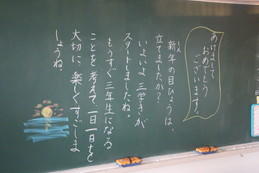 あけまして
おめでとう
ございます。
新年の目ひょうは、
立てましたか？
いよいよ 三学きが
スタートしましたね。
もうすぐ三年生になる
ことを考えて一日一日を
大切に、楽しくすごしま
しょうね。